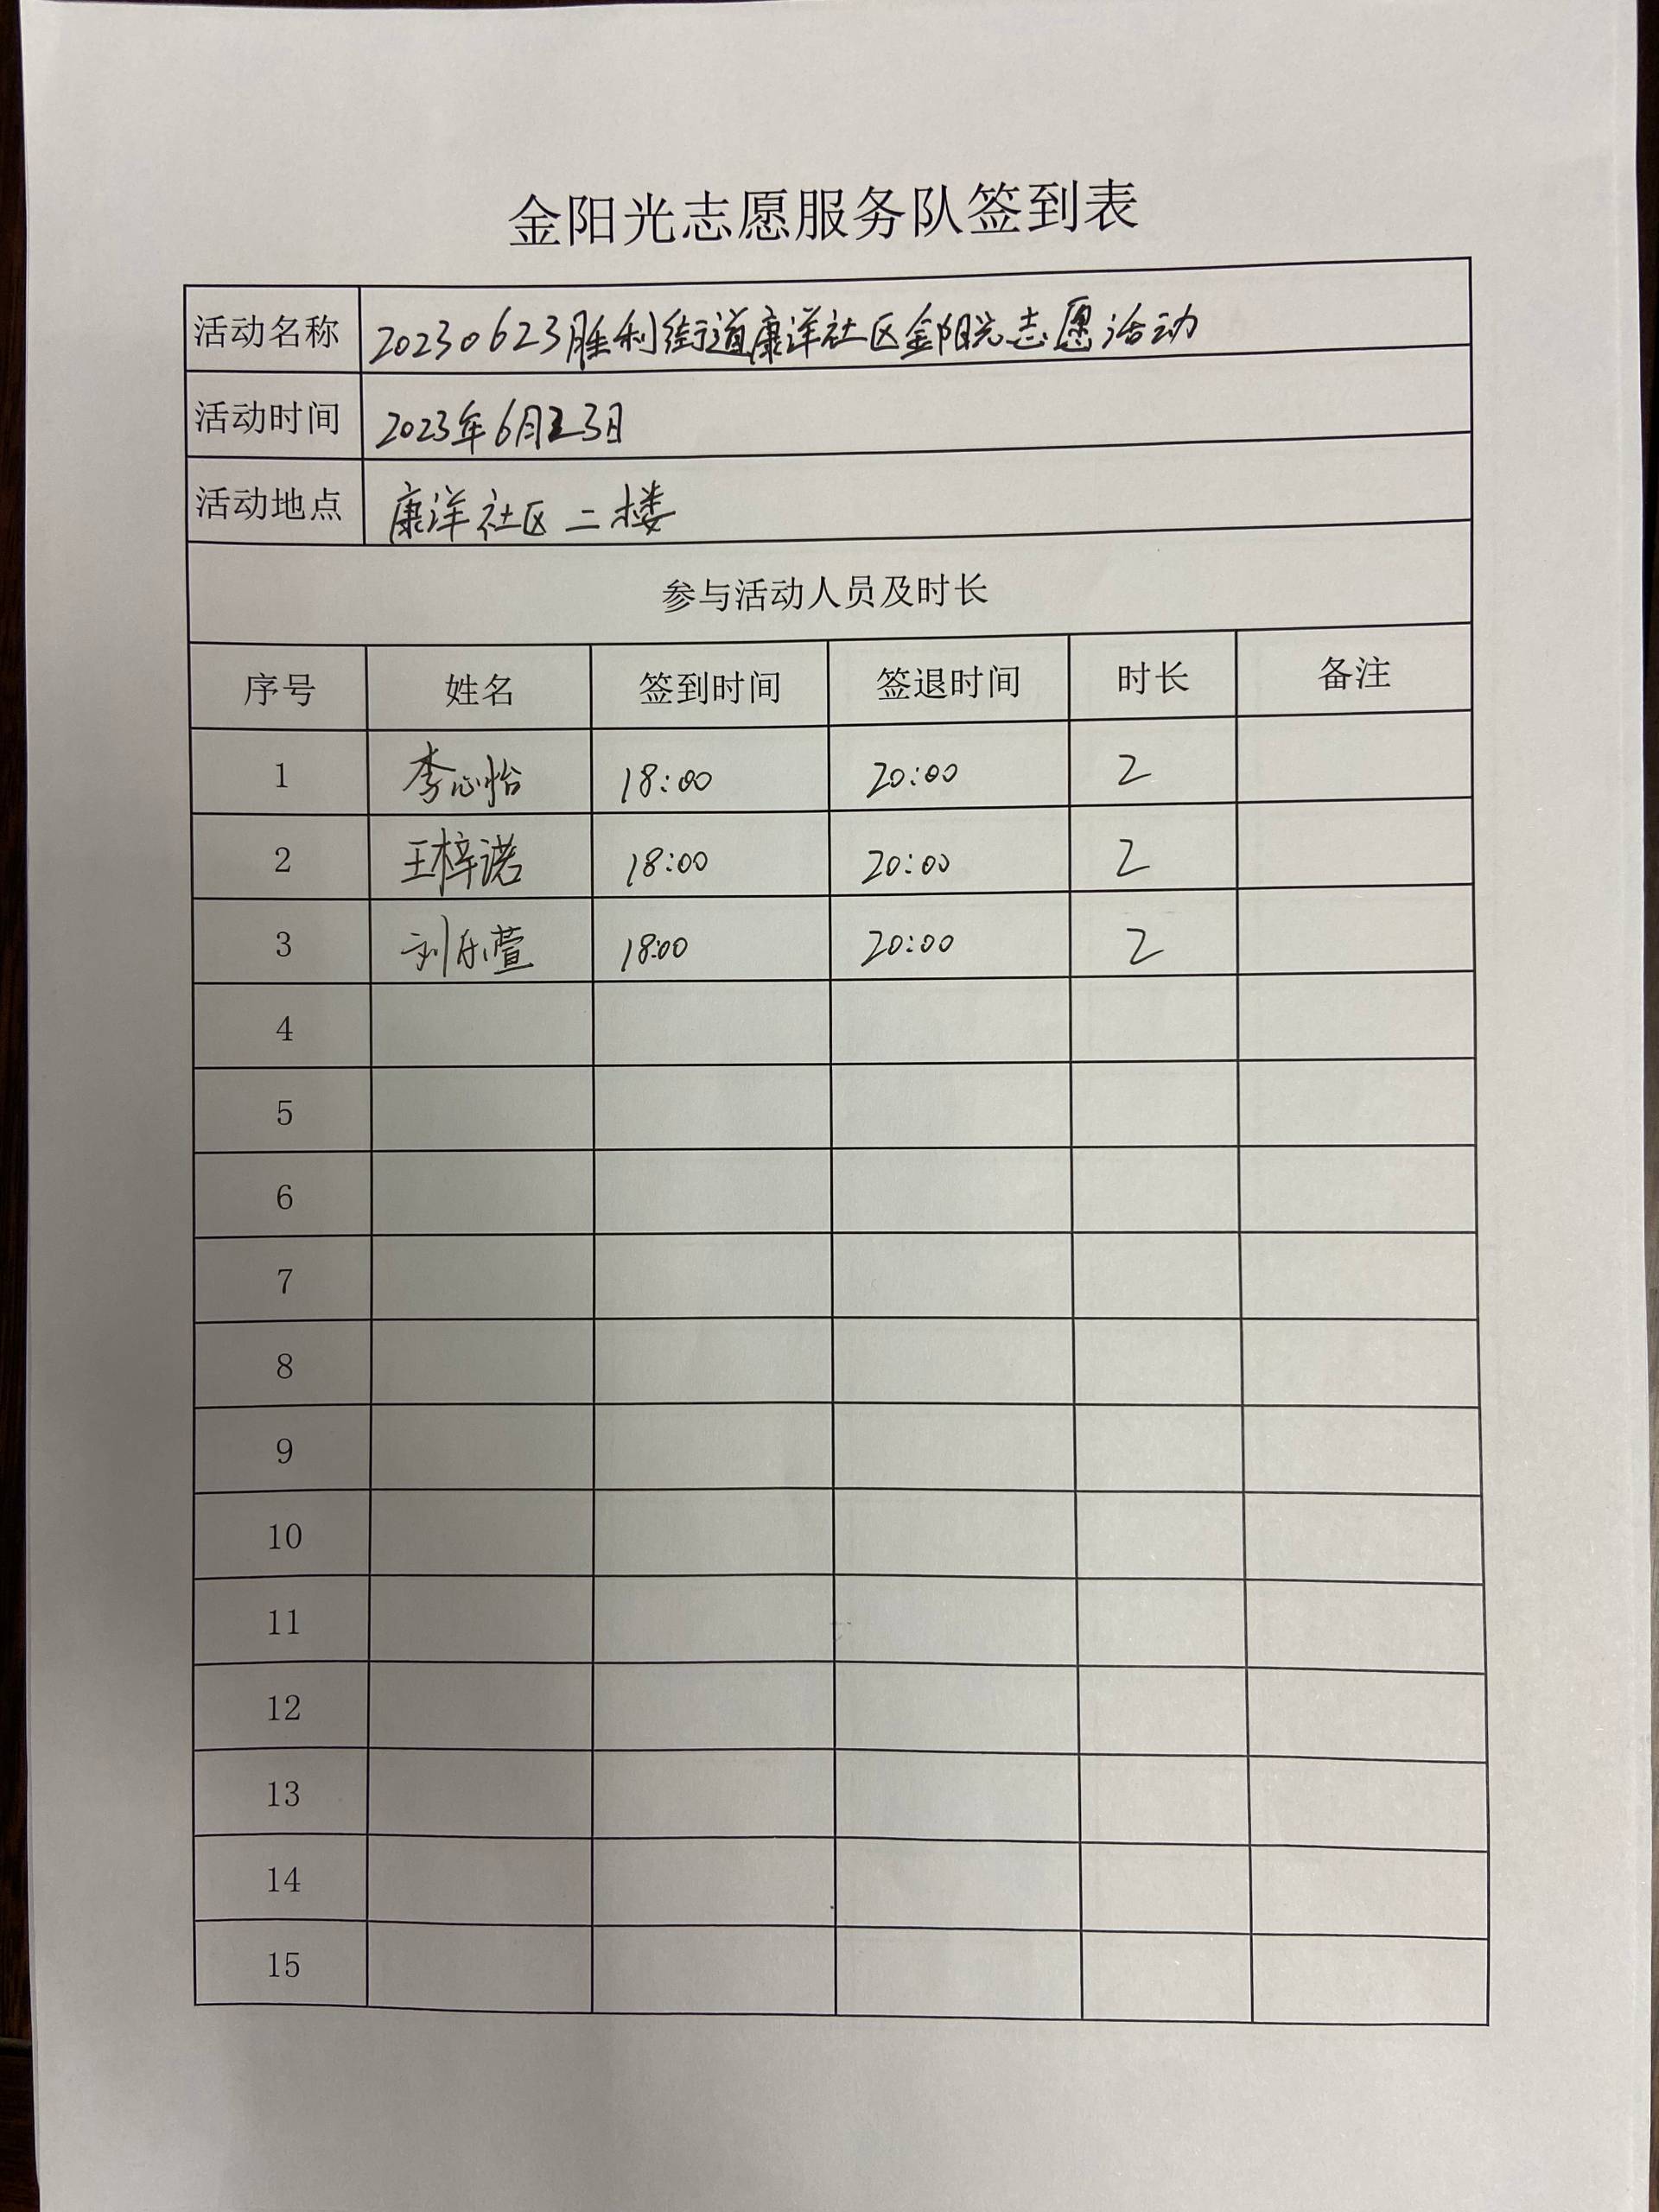 金阳光志愿服务队签到表
活动名称 20230623胜利街道康洋社区金阳光志愿活动
活动时间 2023年6月23日
活动地点 康洋社区二楼
参与活动人员及时长
序号 姓名 签到时间 签退时间 时长 备注
1 李心怡 18:00 20:00 2
2 王梓诺 18:00 20:00 2
3 刘乐萱 18:00 20:00 2
4
5
6
7
8
9
10
11
12
13
14
15